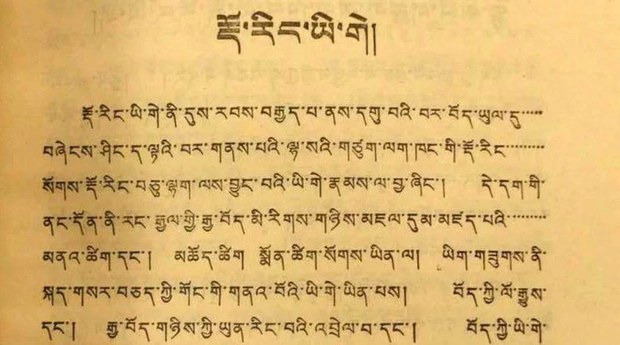 རྡོ་རིང་ཡི་གེ།
རྡོ་རིང་ཡི་གེ་ནི་དུས་རབས་བརྒྱད་པ་ནས་དགུ་བའི་བར་བོད་ཡུལ་དུ་····
བཞེངས་ཤིང་ད་ལྟའི་བར་གནས་པའི་ལྷ་སའི་གཙུག་ལག་ཁང་གི་རྡོ་རིང་········
སོགས་རྡོ་རིང་བཅུ་ལྷག་ལས་བྱུང་བའི་ཡི་གེ་རྣམས་ལ་བྱ་ཞིང་། དེ་དག་གི་
ནང་དོན་ནི་རང་རྒྱལ་གྱི་རྒྱ་བོད་མི་རིགས་གཉིས་མཇལ་དུམ་མཛད་པའི་········
མནའ་ཚིག་དང་། མཆོད་ཚིག སྨོན་ཚིག་སོགས་ཡིན་ལ། ཡིག་གཟུགས་ནི་
སྐད་གསར་བཅད་ཀྱི་གོང་གི་གནའ་བོའི་ཡི་གེ་ཡིན་པས། བོད་ཀྱི་ལོ་རྒྱུས་
དང་། རྒྱ་བོད་གཉིས་ཀྱི་ཡུན་རིང་བའི་འབྲེལ་བ་དང་། བོད་ཀྱི་ཡི་གེ་